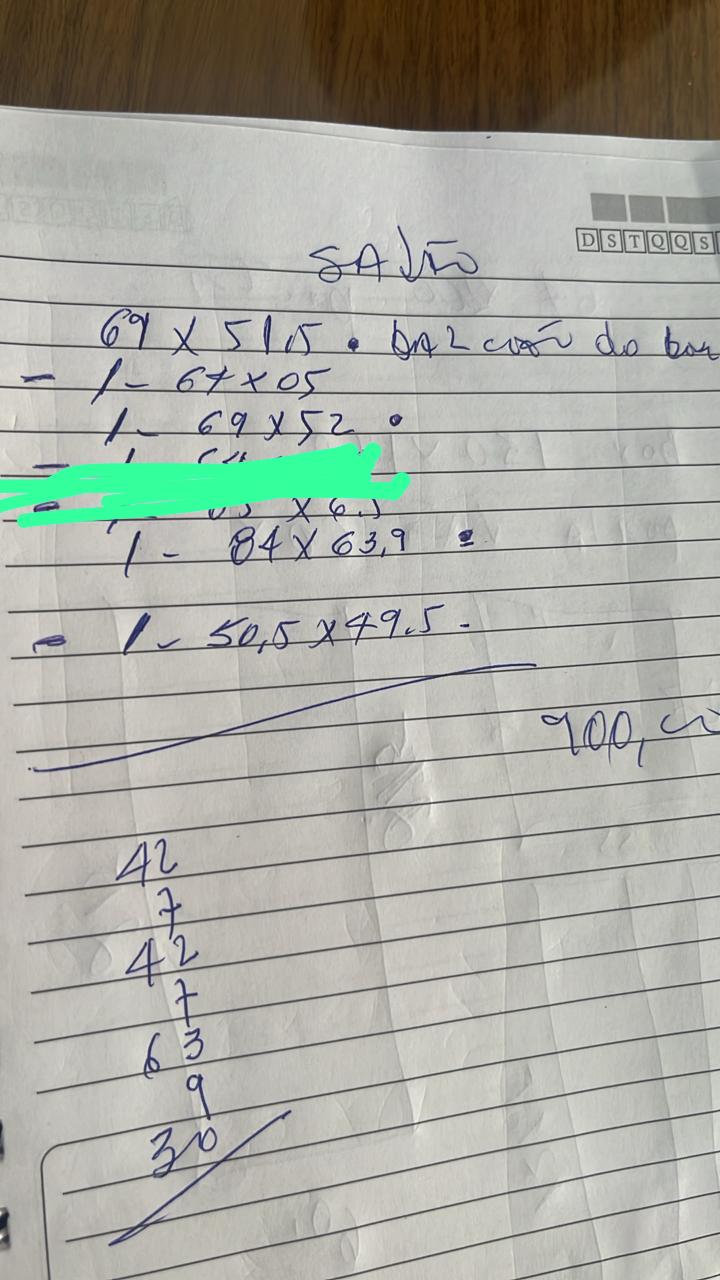 D S T Q Q S
SALÃO
69 X 51.5 . DA 2 do bar
- 1 - 67 X 05
1 - 69 X 52 .
X 6.5
1 - 84 X 63,9
- 1 - 50,5 X 49.5 -
900,00
42
7
42
7
63
9
30